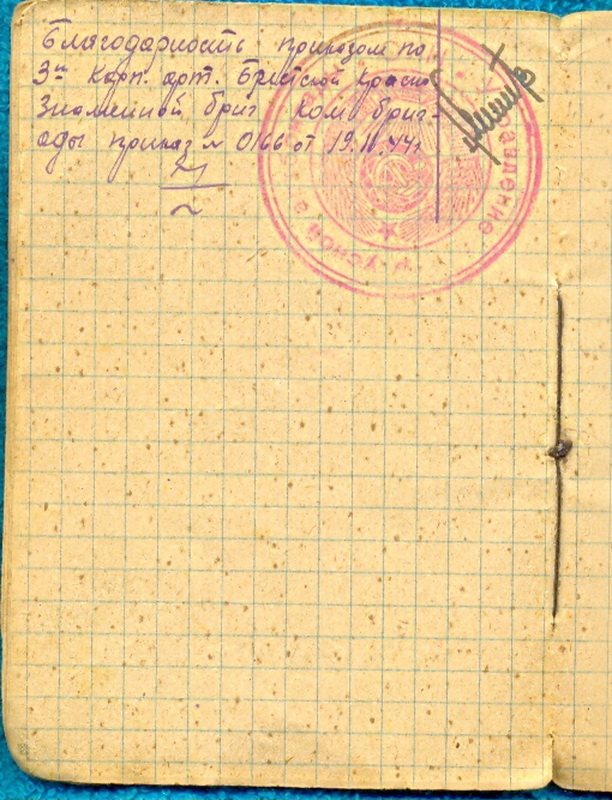 Благодарность приказом по
3ей Корп. арт. Брестской Красно
Знаменной бриг Ком бриг-
ады приказ № 0166 от 19.11.44г.
Управление